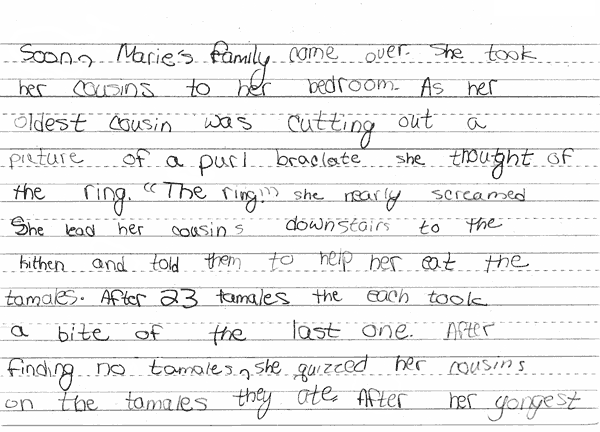 Soon, Marie's family came over. She took
her cousins to her bedroom. As her
oldest cousin was cutting out a
picture of a purl braclate she thought of
the ring. "The ring!" she nearly screamed
She lead her cousins downstairs to the
kithen and told them to help her eat the
tamales. After 23 tamales the each took
a bite of the last one. After
finding no tamales, she quizzed her cousins
on the tamales they ate. After her yongest